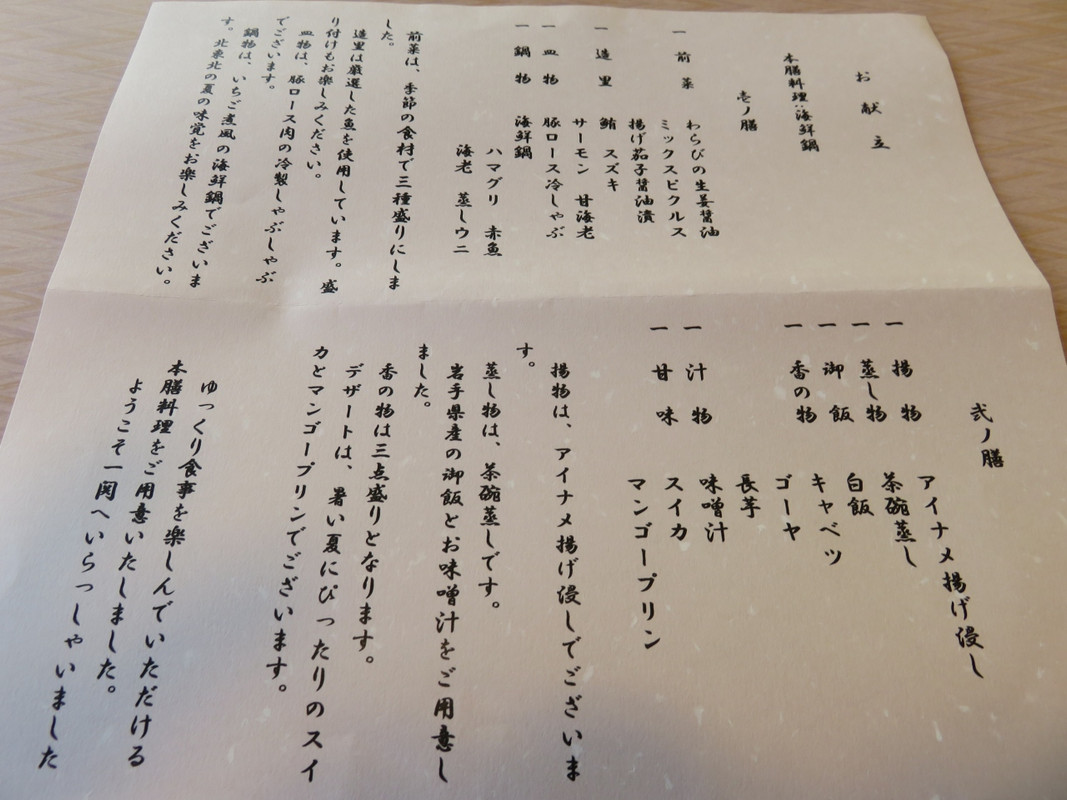 お献立
本膳料理:海鮮鍋
壱ノ膳
一 前菜 わらびの生姜醤油
ミックスピクルス
揚げ茄子醤油漬
一 造里 鮪 スズキ
サーモン 甘海老
一 皿物 豚ロース冷しゃぶ
一 鍋物 海鮮鍋
ハマグリ 赤魚
海老 蒸しウニ
前菜は、季節の食材で三種盛りにしま
した。
造里は厳選した魚を使用しています。盛
り付けもお楽しみください。
皿物は、豚ロース肉の冷製しゃぶしゃぶ
でございます。
鍋物は、いちご煮風の海鮮鍋でございま
す。北東北の夏の味覚をお楽しみください。
弐ノ膳
一 揚物 アイナメ揚げ浸し
一 蒸し物 茶碗蒸し
一 御飯 白飯
一 香の物 キャベツ
ゴーヤ
長芋
一 汁物 味噌汁
一 甘味 スイカ
マンゴープリン
揚物は、アイナメ揚げ浸しでございま
す。
蒸し物は、茶碗蒸しです。
岩手県産の御飯とお味噌汁をご用意し
ました。
香の物は三点盛りとなります。
デザートは、暑い夏にぴったりのスイ
カとマンゴープリンでございます。
ゆっくり食事を楽しんでいただける
本膳料理をご用意いたしました。
ようこそ一関へいらっしゃいました